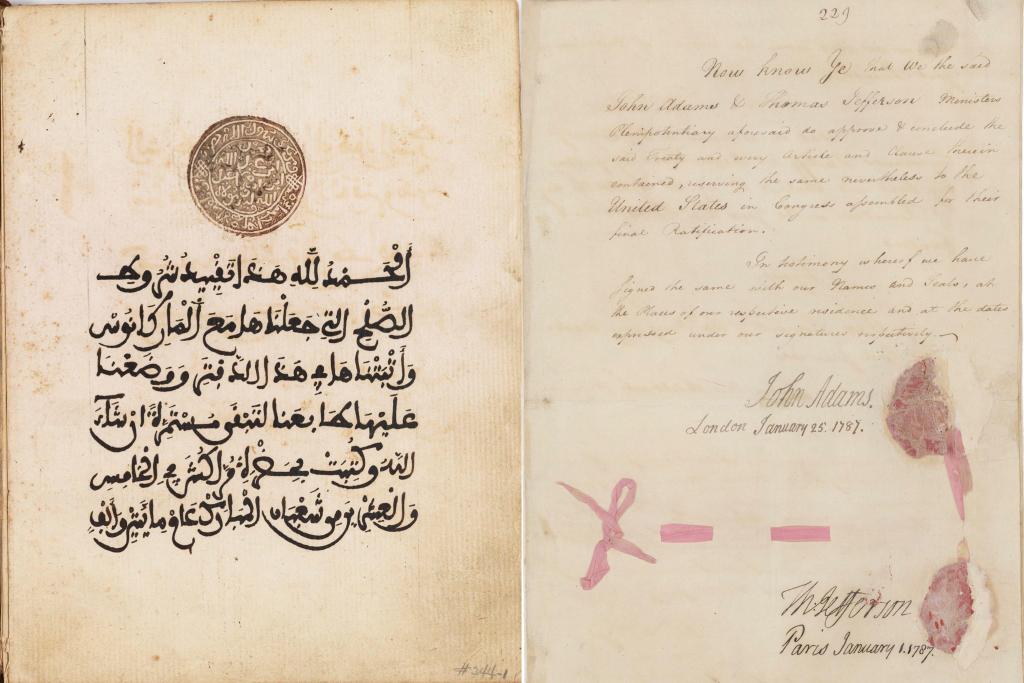 الحمد لله هذا تقييد شروط
الصلح التي جعلناها مع الماركانوس
وأثبتناها في هذا الدفتر ووضعنا
عليها طابعنا لتبقى مستمرة إن شاء
الله وكتبت بحضرة مراكش في الخامس
والعشرين يوم شعبان المبارك عام مائتين وألف
#244-1
229
Now know Ye that We the said
John Adams & Thomas Jefferson Ministers
Plenipotentiary aforesaid do approve & conclude the
said Treaty and every Article and Clause therein
contained, reserving the same nevertheless to the
United States in Congress assembled for their
final Ratification.
In testimony whereof we have
signed the same with our Names and Seals, at
the Places of our respective residence and at the dates
expressed under our signatures respectively.
John Adams.
London January 25. 1787.
Th: Jefferson
Paris January 1. 1787.